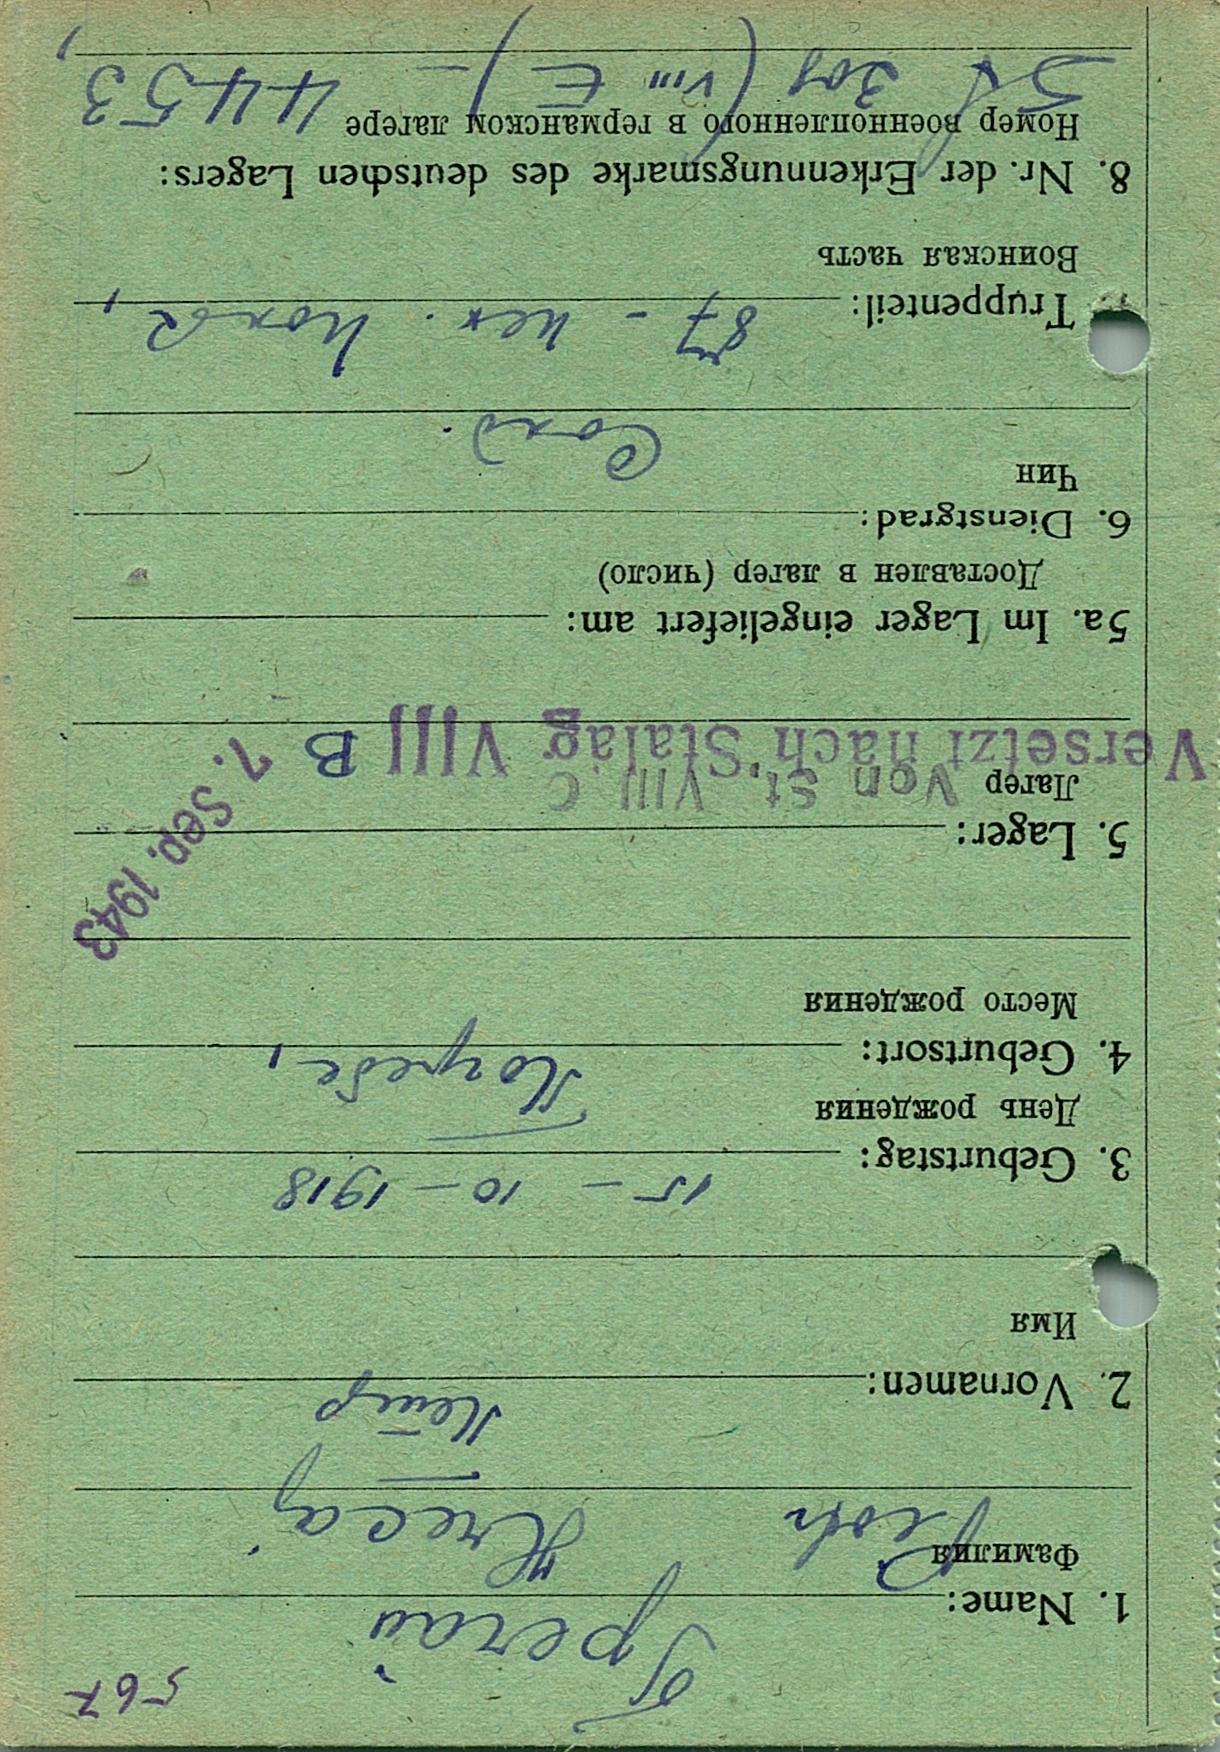 567
Грегай
1. Name:
Фамилия
Piotr Hrecaj
Петр
2. Vornamen:
Имя
15 – 10 – 1918
3. Geburtstag:
День рождения
4. Geburtsort:
Место рождения
7. Sep. 1943
5. Lager:
Лагер Von St. VIII C
Versetzt nach Stalag VIII B
5a. Im Lager eingeliefert am:
Доставлен в лагер (число)
6. Dienstgrad:
Чин
Солд.
87 –
7. Truppenteil:
Воинская часть
8. Nr. der Erkennungsmarke des deutschen Lagers:
Номер военнопленного в германском лагере
St 308 (VIII E) – 4453,